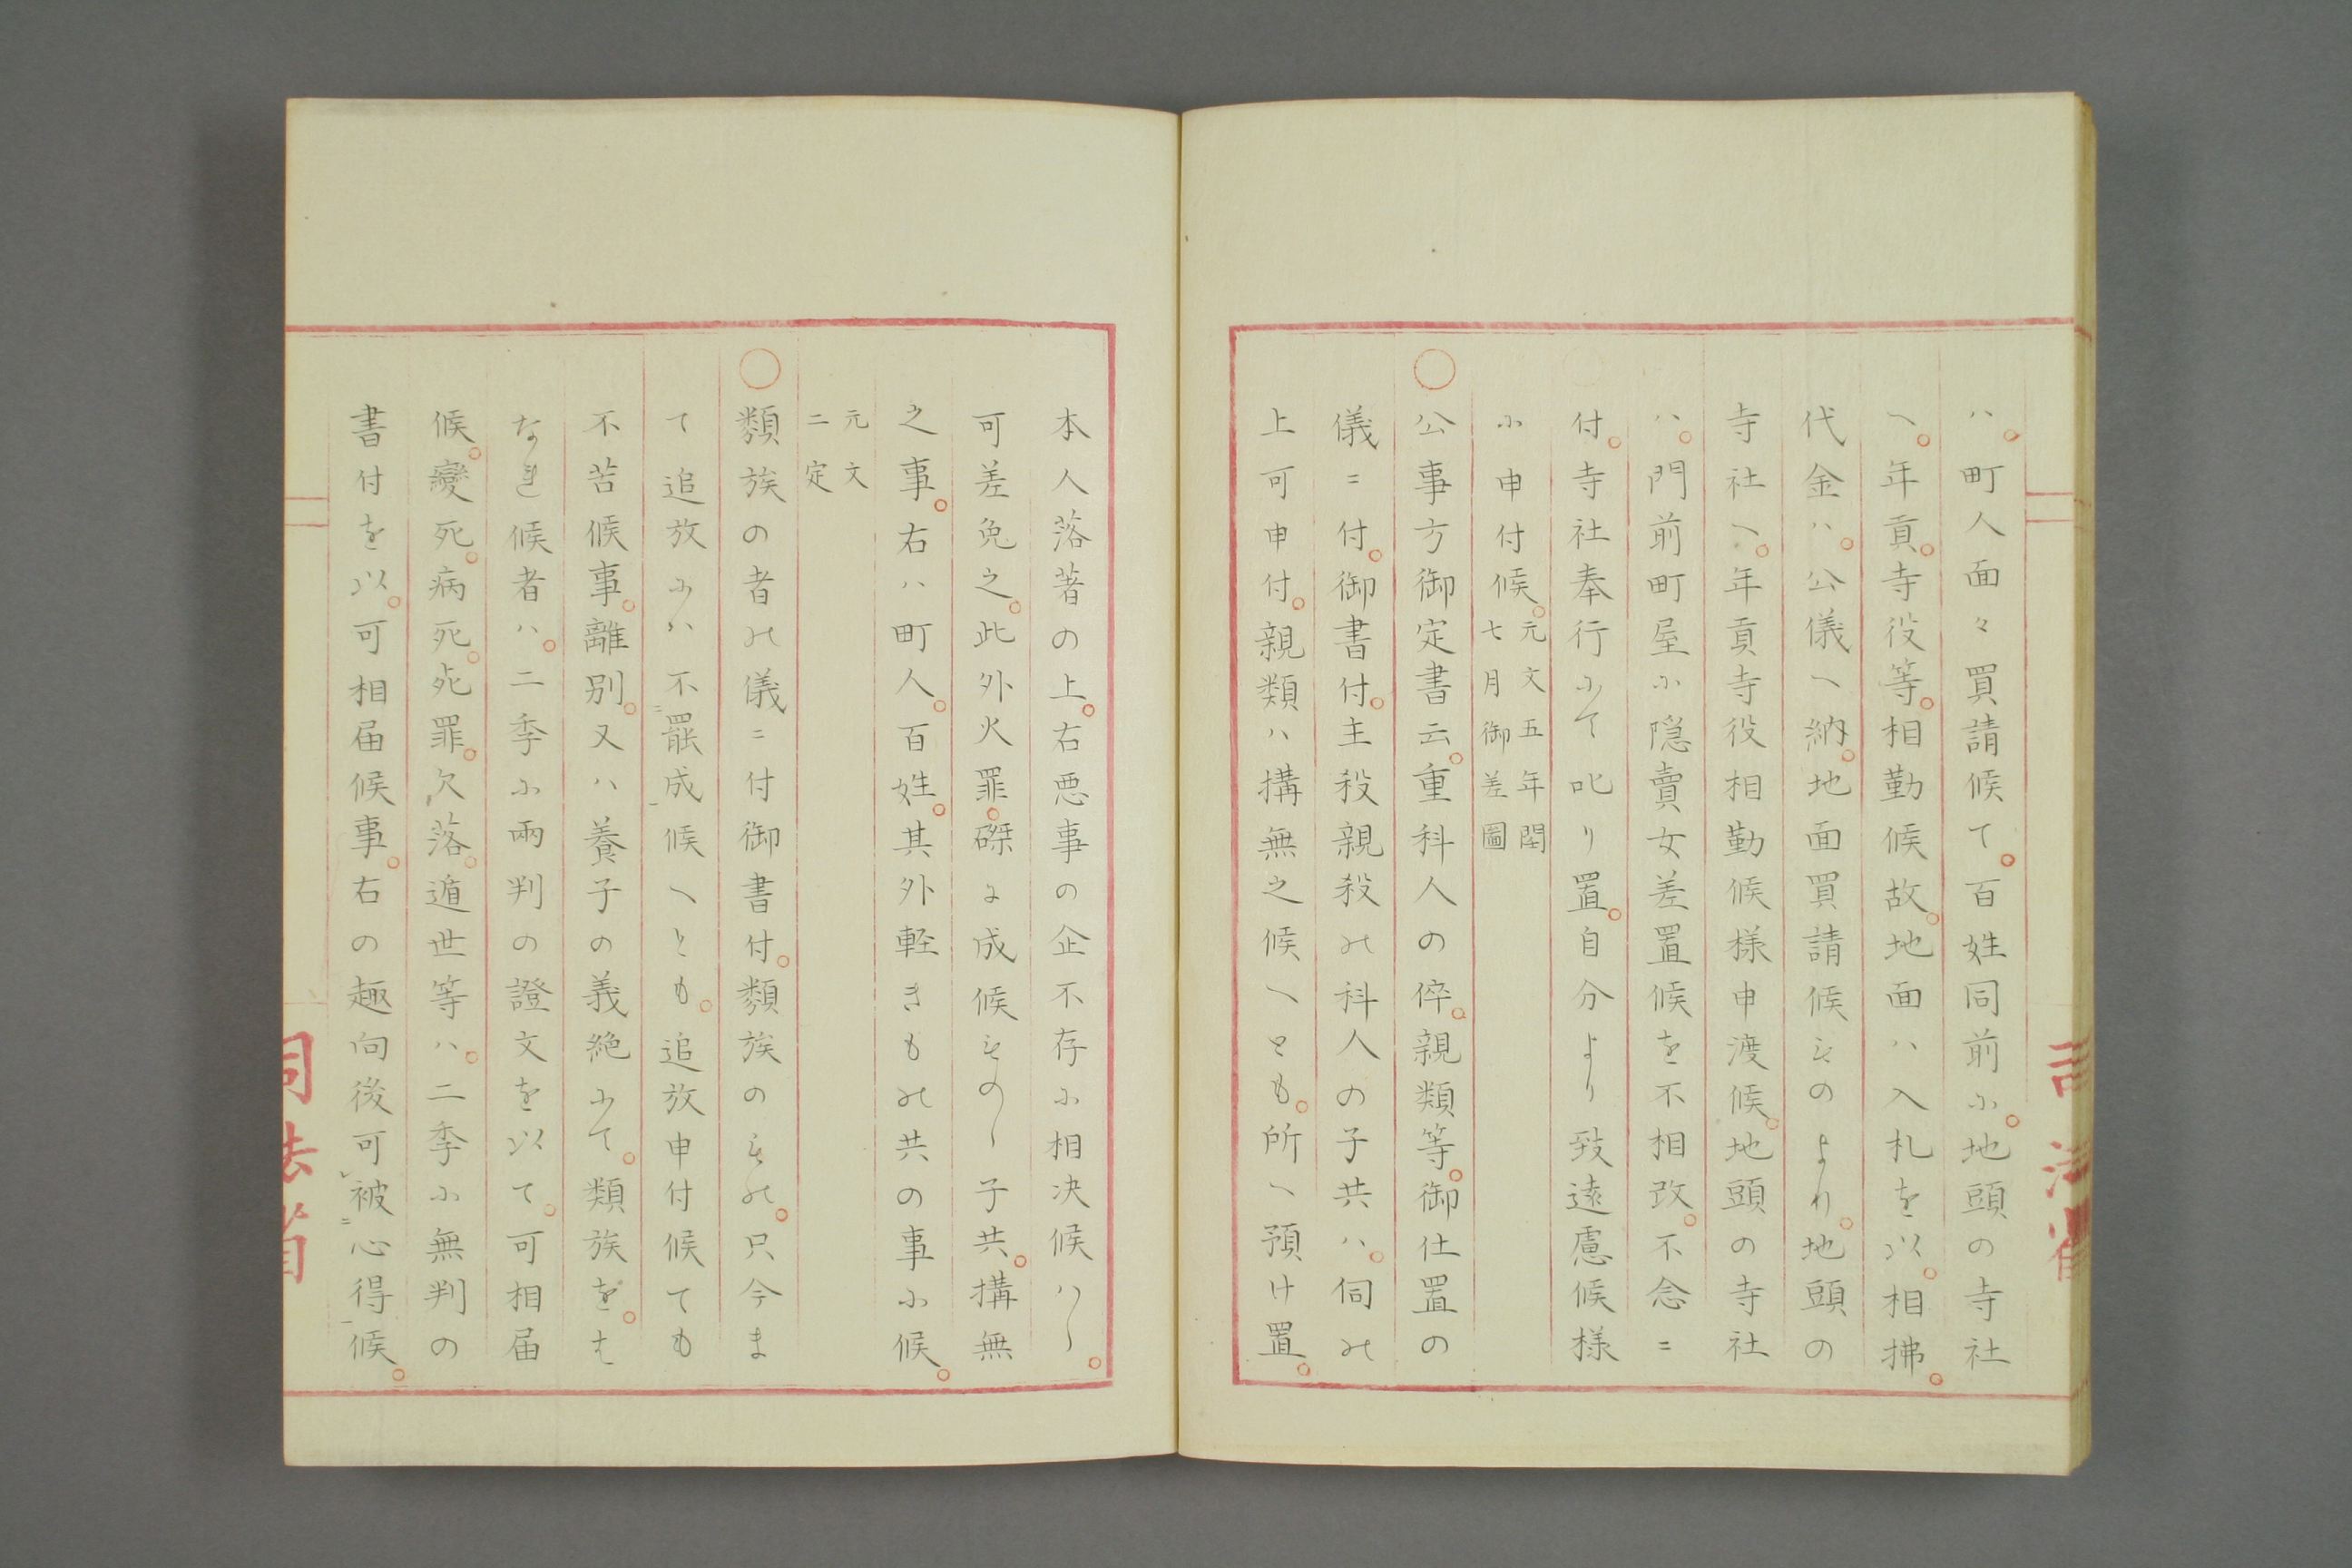 ハ。町人面々買請候て。百姓同前ニ。地頭の寺社
へ。年貢。寺役等。相勤候故。地面ハ入札を以。相拂。
代金ハ。公儀へ納。地面買請候ものより。地頭の
寺社へ。年貢寺役相勤候様申渡候。地頭の寺社
ハ。門前町屋ニ隠賣女差置候を不相改。不念ニ
付。寺社奉行ニて叱り置。自分より致遠慮候様
ニ申付候。元文五年閏
七月御差圖
○公事方御定書云。重科人の倅。親類等。御仕置の
儀ニ付。御書付。主殺親殺の科人の子共ハ。伺の
上可申付。親類ハ搆無之候へとも。所へ預け置。
本人落著の上。右悪事の企不存ニ相决候ハヽ。
可差免之。此外火罪。磔に成候ものゝ子共。搆無
之事。右ハ町人。百姓。其外軽きもの共の事ニ候。
元文
二定
○類族の者の儀ニ付御書付。類族のもの。只今ま
て追放にハ不罷成候へとも。追放申付候ても
不苦候事。離別。又ハ養子の義絶にて。類族を。は
なれ候者ハ。二季ニ兩判の證文を以て。可相届
候。變死。病死。死罪。欠落。遁世等ハ。二季ニ無判の
書付を以。可相届候事。右の趣向後可被心得候。
司法省
司法省